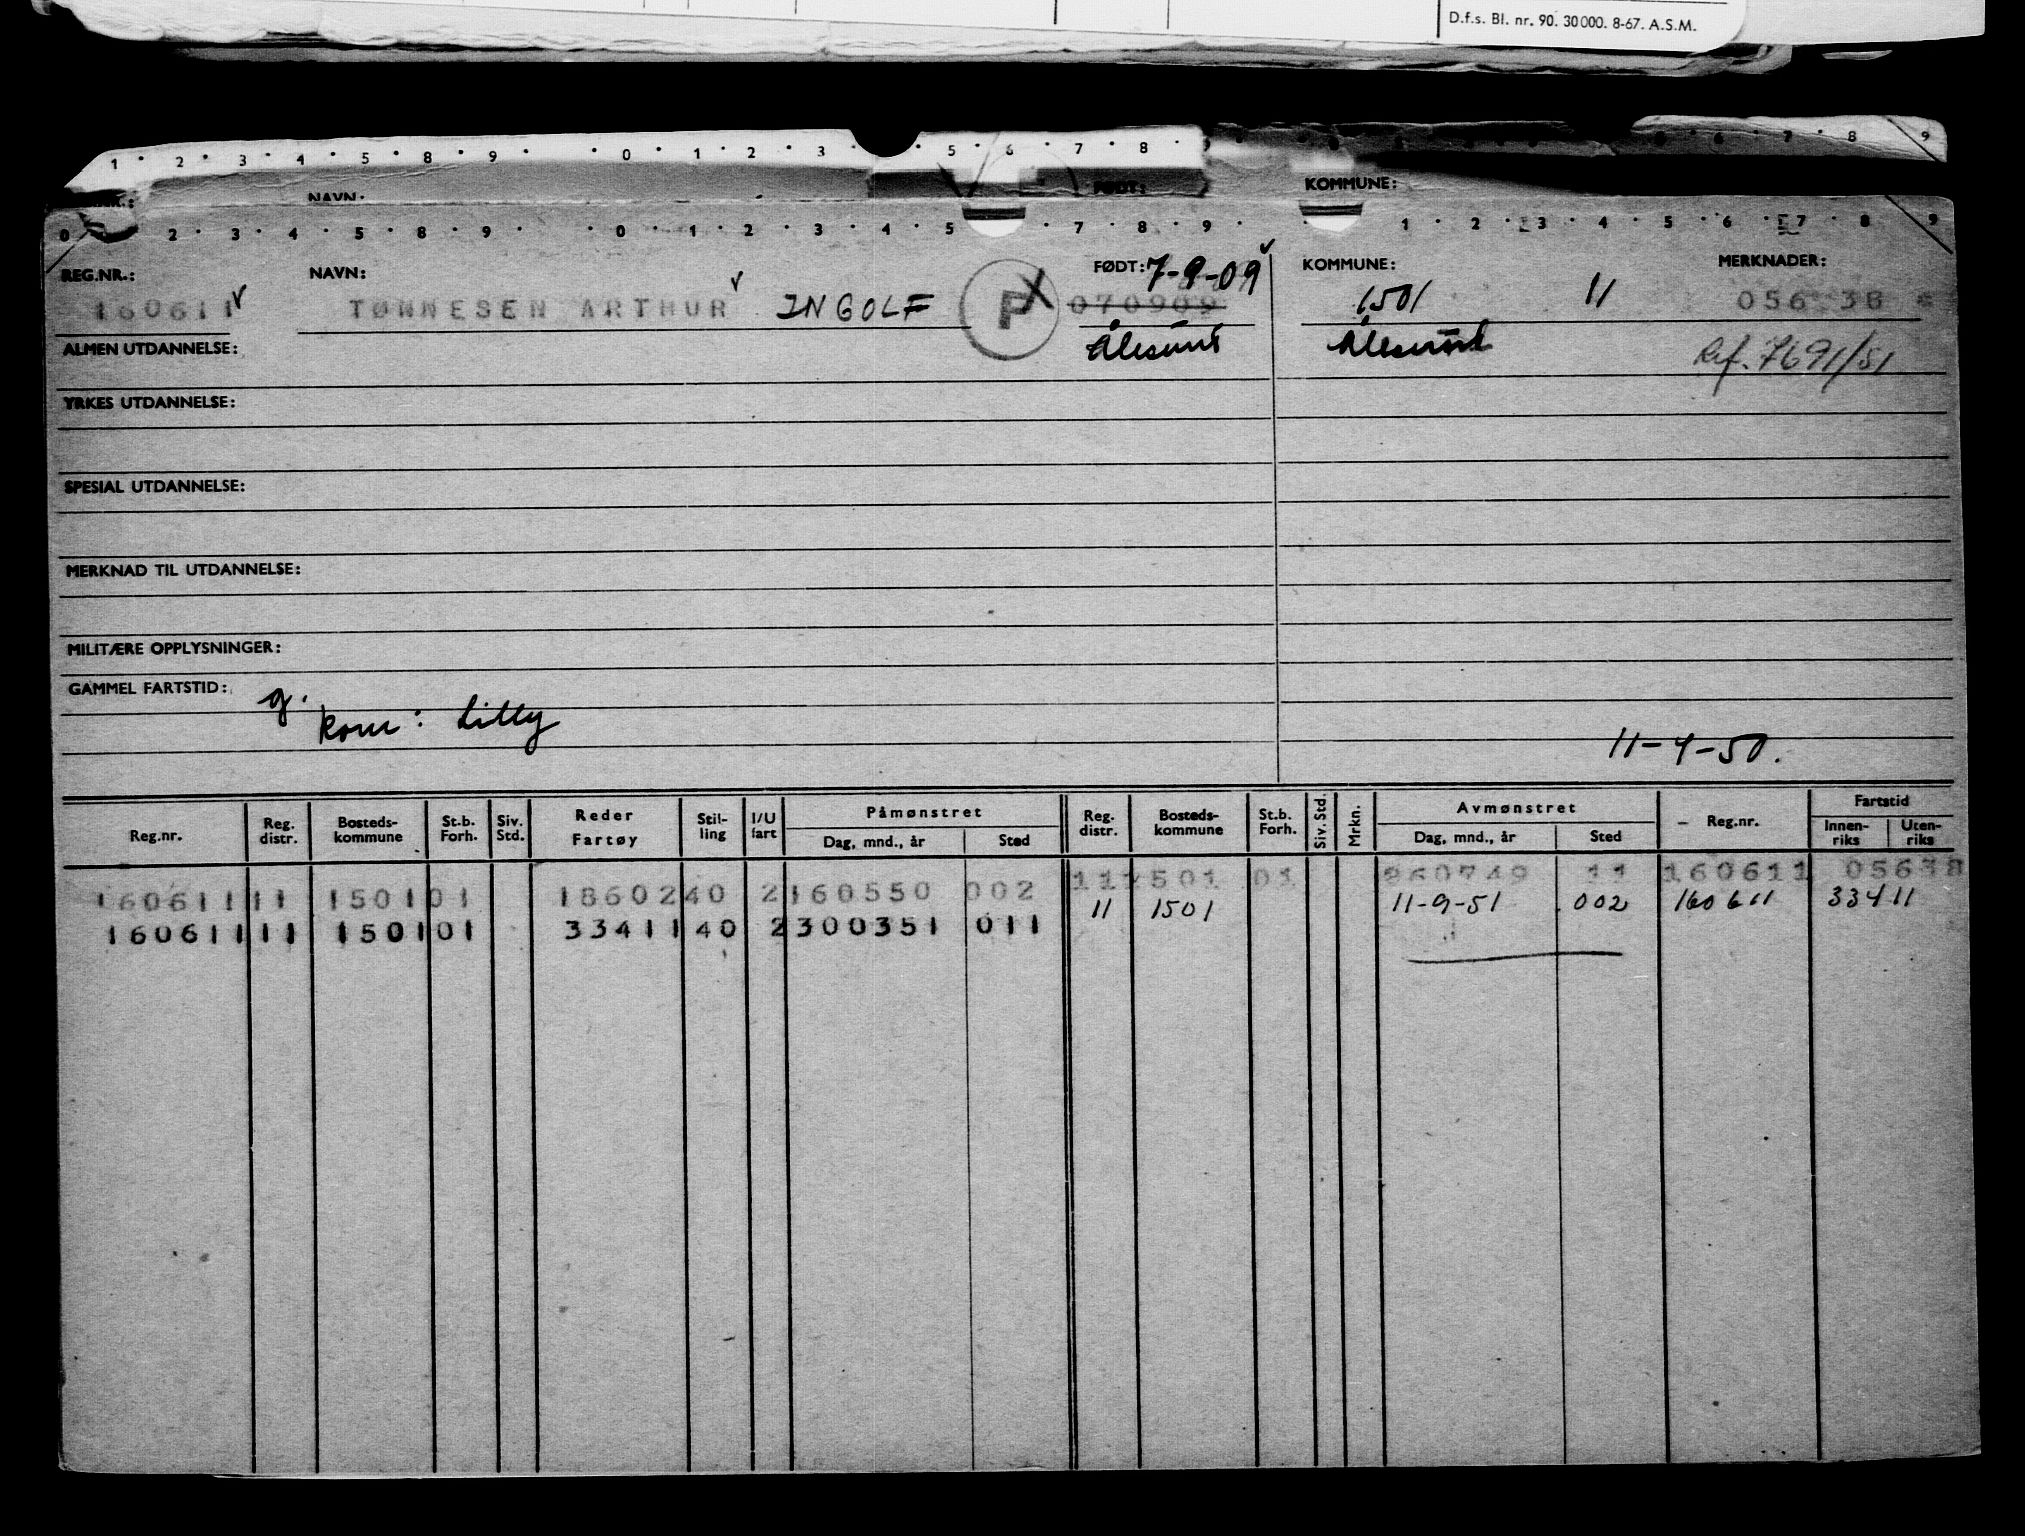 D.f.s. Bl. nr. 90. 30 000. 8-67. A.S.M.
1 · 2 · 3 · 4 · 5 · 8 · 9 · · 0 · 1 · 2 · 3 · 5 · 6 · 7 · 8 · 6 · 7 · 8 9
NAVN: FØDT: KOMMUNE:
0 2 · 3 · 4 · 5 · 8 · 9 · · 0 · 1 · 2 · 3 · 4 · 5 · 7 · 8 · 9 · 1 · 2 · 3 · 4 · 5 · 6 · 7 · 8 · 9
REG.NR.: NAVN: FØDT: 7-9-09 KOMMUNE: MERKNADER:
160611 TØNNESEN ARTHUR INGOLF P 070909 1501 11 056 38
ALMEN UTDANNELSE: Ålesund Ålesund Ref. 7691/51
YRKES UTDANNELSE:
SPESIAL UTDANNELSE:
MERKNAD TIL UTDANNELSE:
MILITÆRE OPPLYSNINGER:
GAMMEL FARTSTID: g.
kone: Lilly
11-4-50.
Reg.nr. Reg. distr. Bosteds-kommune St.b. Forh. Siv. Std. Reder Fartøy Stil-ling I/U fart Påmønstret Dag, mnd., år Sted Reg. distr. Bosteds-kommune St.b. Forh. Siv. Std. Mrkn. Avmønstret Dag, mnd., år Sted Reg.nr. Fartstid Innen-riks Uten-riks
11 1501 01 260749 11 160611 05638
160611 11 1501 01 18602 40 2 160550 002 11 1501 11-9-51 002 160611 33411
160611 11 1501 01 33411 40 2 300351 011